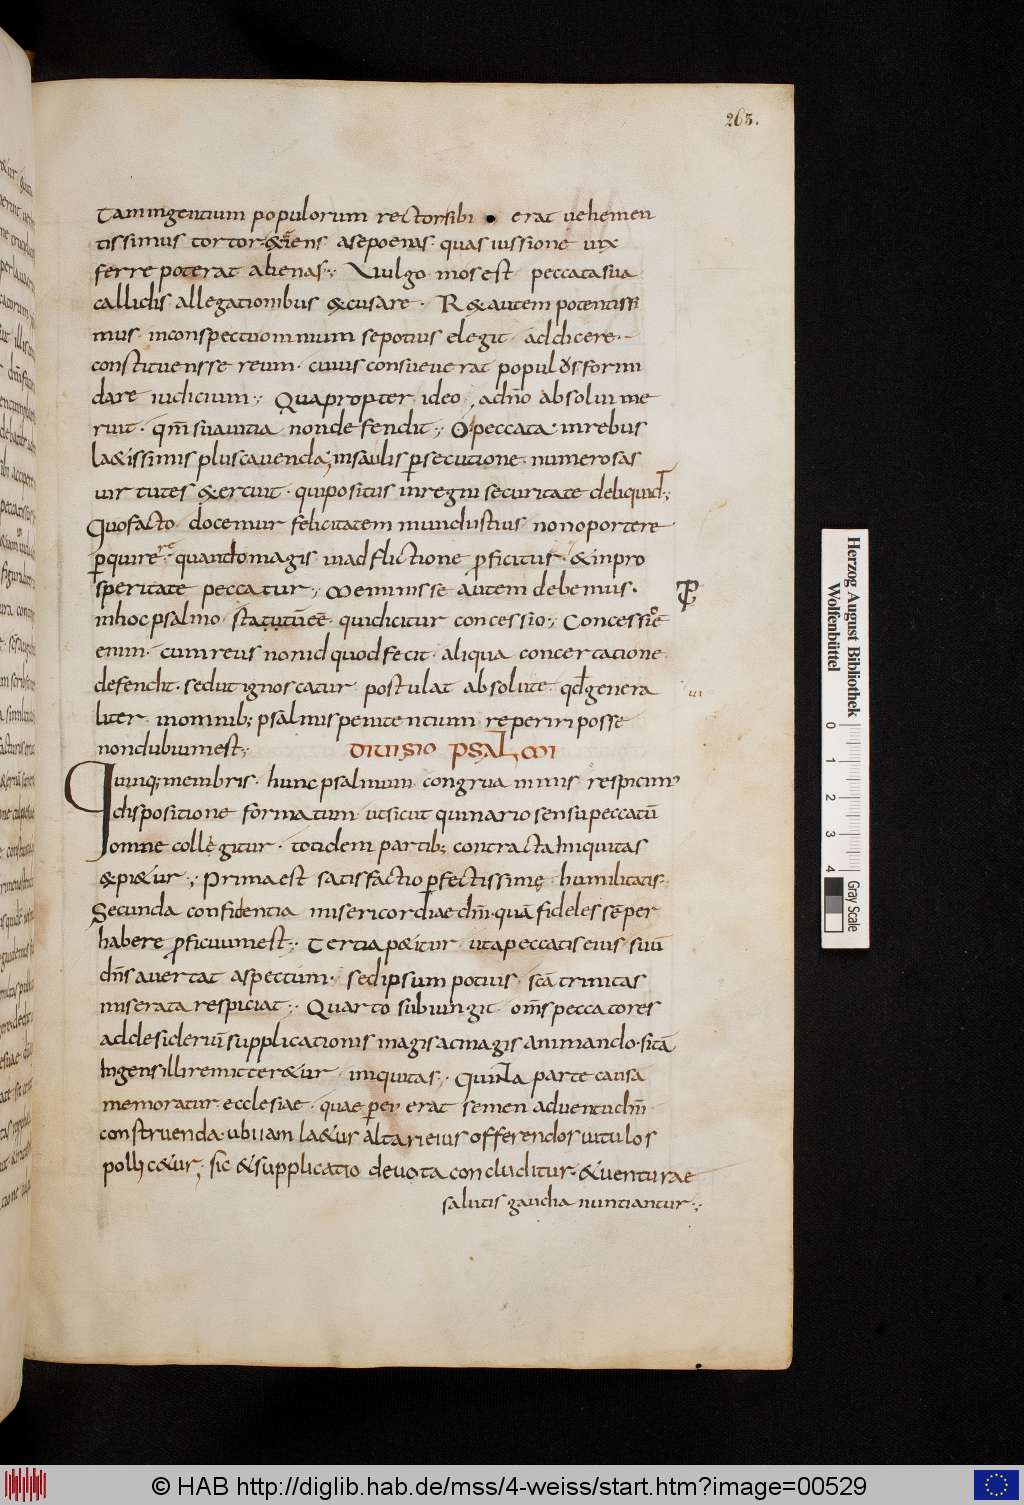 263.
Tam ingentium populorum rector sibi erat uehemen
tissimus tortor · & exigens a se poenas · quas iussione uix
ferre poterat alienas ·, Vulgo mos est peccata sua
callidis allegationibus excusare · Rex autem potentissi
mus · in conspectu omnium se potius elegit addicere ·
constituens se reum · cuius consueuerat populus formi
dare iudicium ·, Quapropter ideo a dño absolui me
ruit · qm̃ sua uitia non defendit ·, O peccata · in rebus
laetissimis plus cauenda; in saulis persecutione · numerosas
uirtutes exercuit · qui positus in regni securitate deliquid ·,
Quo facto docemur felicitatem mundi istius non oportere
ꝑquirere · quando magis in adflictione ꝓficitur · & in pro
speritate peccatur ·, Meminisse autem debemus ·
in hoc psalmo statutū eē · qui dicitur concessio ·, Concessio ē
enim · cum reus non id quod fecit · aliqua concertatione
defendit · sed ut ignoscatur postulat absolute · qđ genera
liter in omnib; psalmis penitentium reperiri posse
non dubium est ·,
DIUISIO PSALMI
Quinq; membris · hunc psalmum congrua nimis respicimus
dispositione formatum · ut sicut quinario sensu peccatū
omne collegitur · totidem partib; contracta iniquitas
expi&ur ·, Prima est satisfactio ꝑfectissimę humilitatis ·
Secunda confidentia misericordiae dñi · quā fideles sēper
habere ꝓficuum est ·, Tertia p&itur · ut a peccatis eius suū
dñs auertat aspectum · sed ipsum potius · scā trinitas
miserata respiciat ·, Quarto subiungit · om̃s peccatores
ad desiderium supplicationis magis ac magis animando · si tā
ingens illi remitter&ur iniquitas ·, Quinta parte causa
memoratur ecclesiae · quae per erat semen aduentu dñi
construenda · ubi iam la&us altari eius offerendos uitulos
pollic&ur; sic & supplicatio deuota concluditur · & uenturae
salutis gaudia nuntiantur ·,
Herzog August Bibliothek
Wolfenbüttel
0 1 2 3 4
Gray Scale
© HAB http://diglib.hab.de/mss/4-weiss/start.htm?image=00529